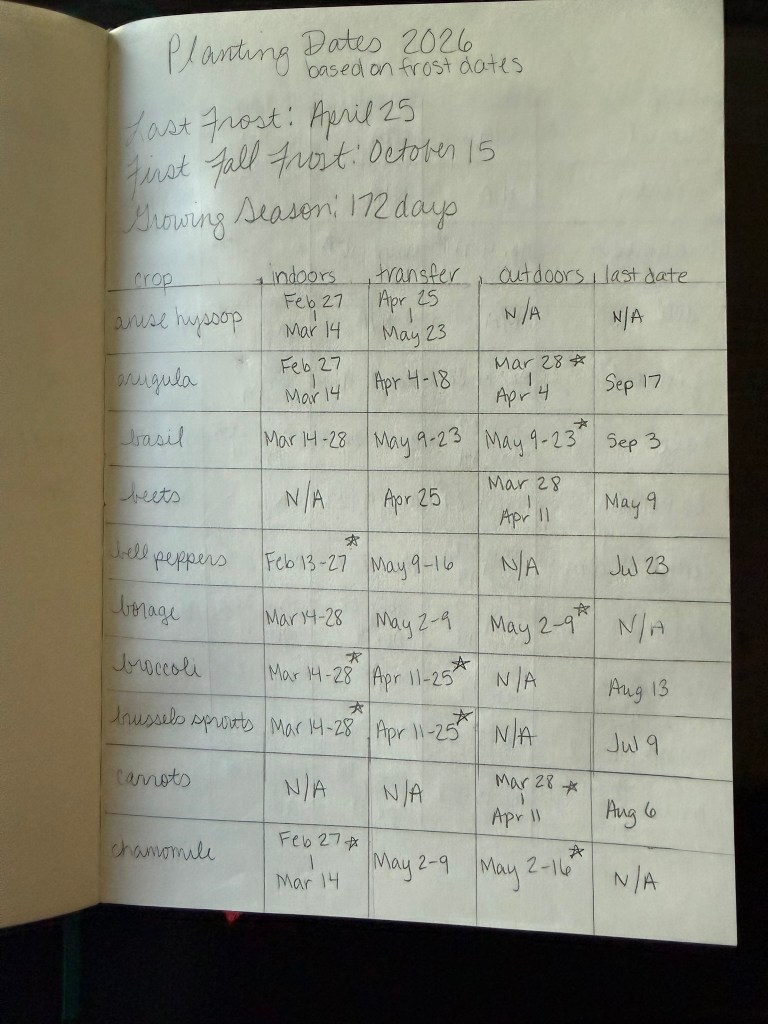 Planting Dates 2026
based on frost dates
Last Frost: April 25
First Fall Frost: October 15
Growing Season: 172 days
crop indoors transfer outdoors last date
anise hyssop Feb 27 | Mar 14 Apr 25 | May 23 N/A N/A
arugula Feb 27 | Mar 14 Apr 4-18 Mar 28 ☆ | Apr 4 Sep 17
basil Mar 14-28 May 9-23 May 9-23 ☆ Sep 3
beets N/A Apr 25 Mar 28 | Apr 11 May 9
bell peppers Feb 13-27 ☆ May 9-16 N/A Jul 23
borage Mar 14-28 May 2-9 May 2-9 ☆ N/A
broccoli Mar 14-28 ☆ Apr 11-25 ☆ N/A Aug 13
brussels sprouts Mar 14-28 ☆ Apr 11-25 ☆ N/A Jul 9
carrots N/A N/A Mar 28 ☆ | Apr 11 Aug 6
chamomile Feb 27 ☆ | Mar 14 May 2-9 May 2-16 ☆ N/A